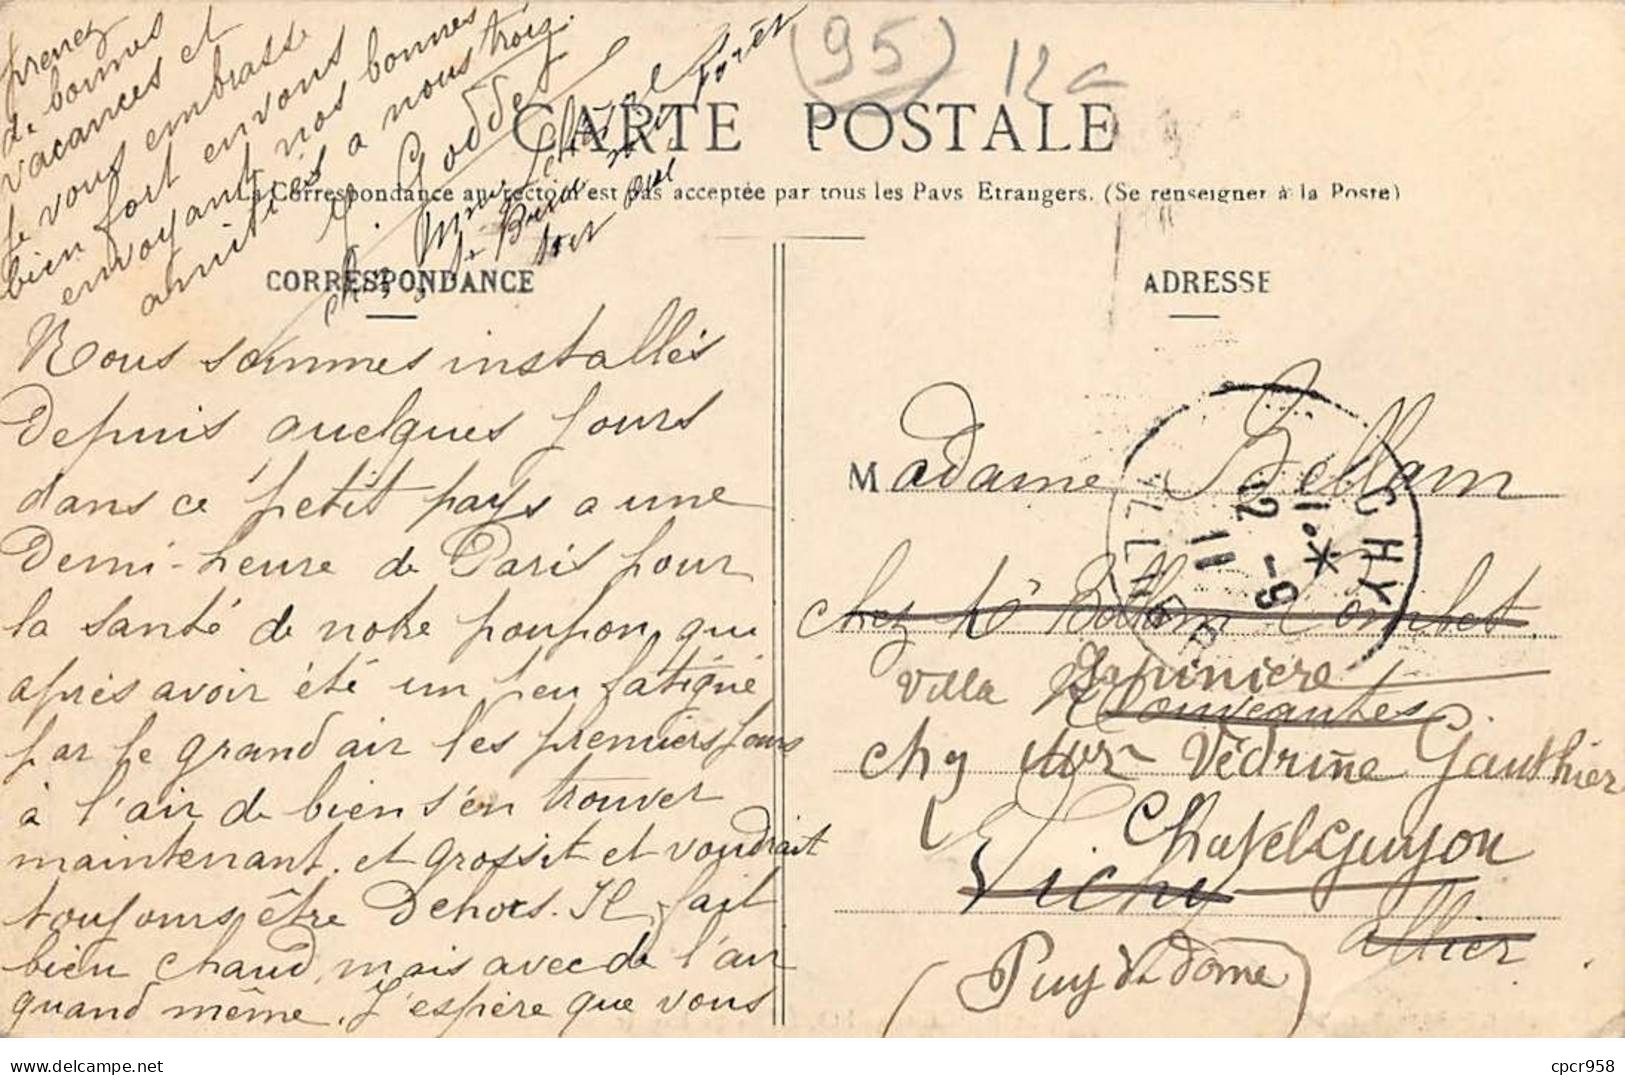 (95) 12
CARTE POSTALE
La Correspondance au recto n'est pas acceptée par tous les Pays Etrangers. (Se renseigner à la Poste)
CORRESPONDANCE
Nous sommes installés
Depuis quelques jours
dans ce petit pays a une
Demi-heure de Paris pour
la santé de notre poupon, qui
après avoir été un peu fatigué
par le grand air les premiers jours
à l'air de bien s'en trouver
maintenant. et grossit et voudrait
toujours être Dehors. Il fait
bien chaud, mais avec de l'air
quand même. J'espère que vous
prenez
de bonnes
vacances et
je vous embrasse
bien fort en vous
envoyant nos bonnes
amitiés a nous trois.
Goddet
chez Mme
ADRESSE
Madame Bellam
chez Mr Bellam Combet
Villa Sapinière
Nouveautés
chez Mer Védrine Gauthier
Chatelguyon
Vichy
Allier
(Puy de Dome)
VICHY
1* 
12 -9
11
ALLIER
cpcr958